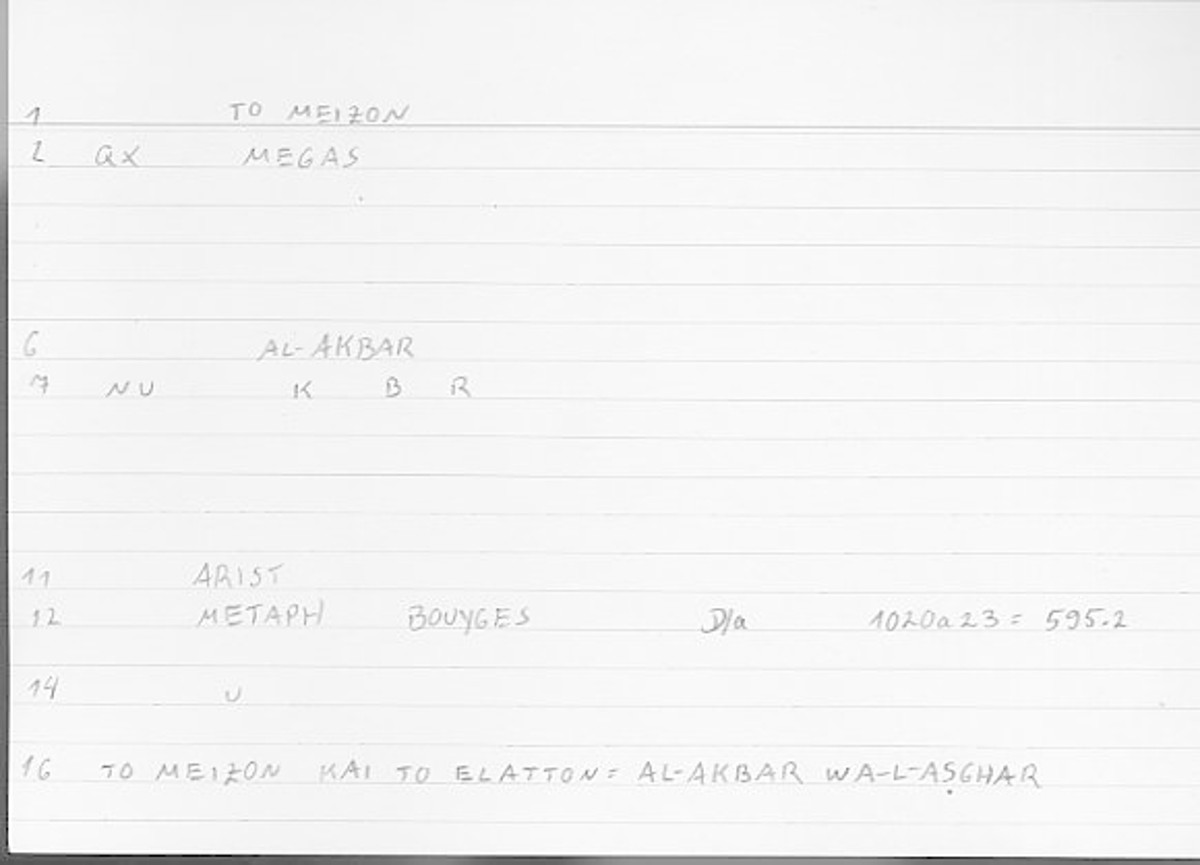 1 TO MEIZON
2 QX MEGAS
6 AL-AKBAR
7 NU K B R
11 ARIST
12 METAPH BOUYGES D/a 1020a23 = 595.2
14 U
16 TO MEIZON KAI TO ELATTON = AL-AKBAR WA-L-AṢGHAR